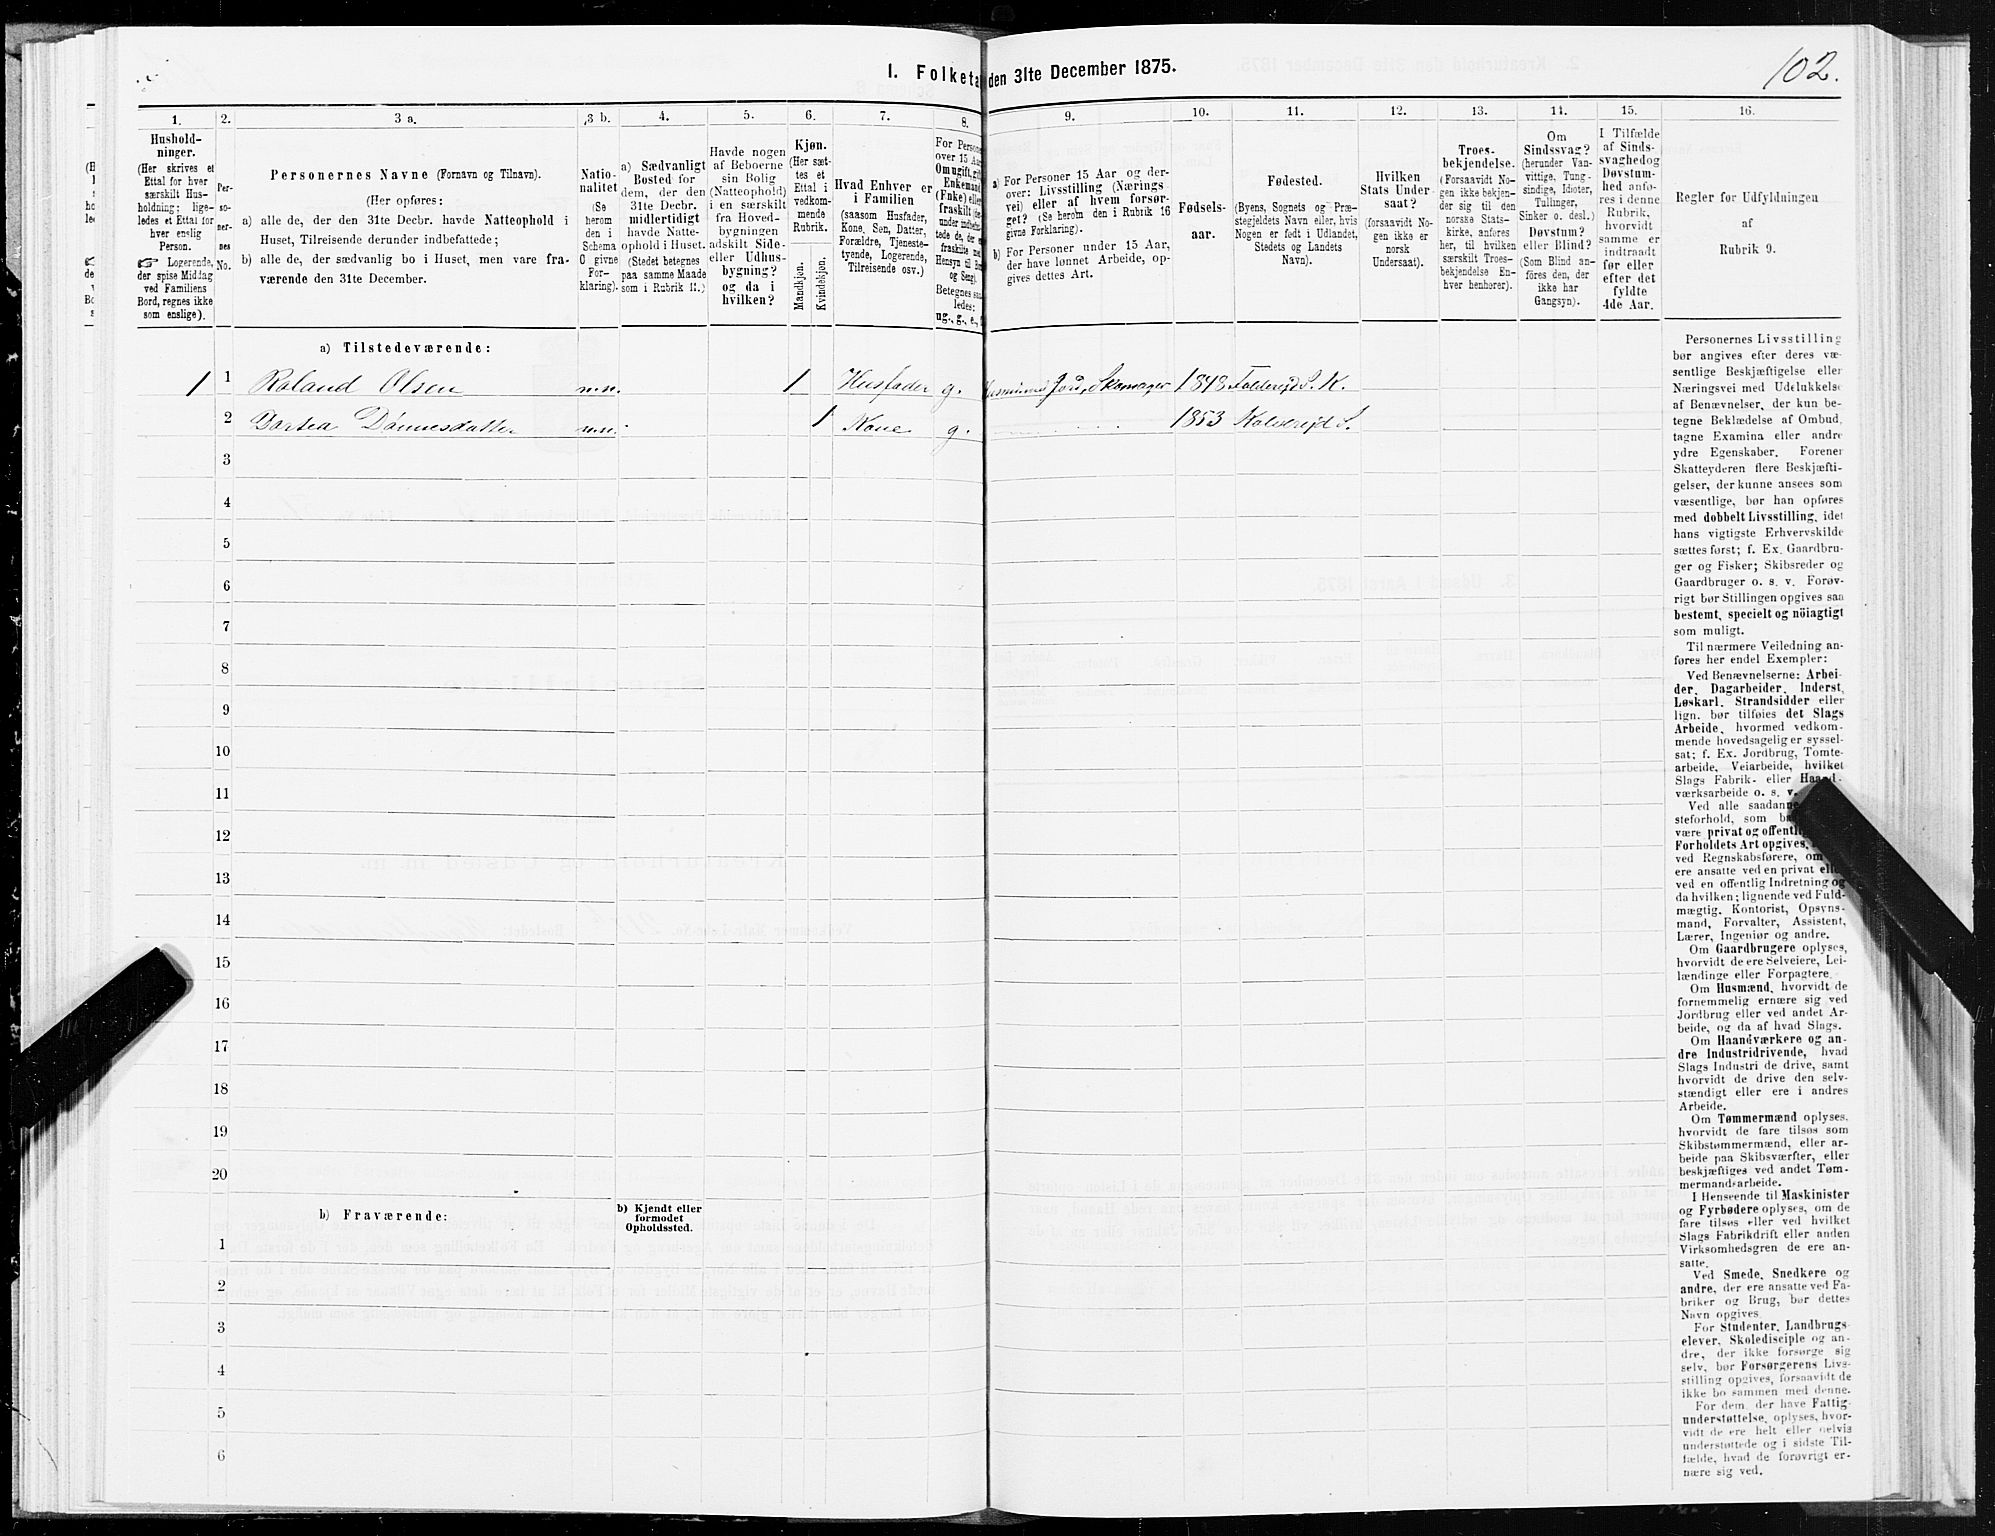 102.
I. Folketa den 31te December 1875.
1. 2. 3 a. 3 b. 4. 5. 6. 7. 8. 9. 10. 11. 12. 13. 14. 15. 16.
Hushold-
ninger.
(Her skrives et
Ettal for hver
særskilt Hus-
holdning; lige-
ledes et Ettal for
hver enslig
Person.
☞ Logerende,
der spise Middag
ved Familiens
Bord, regnes ikke
som enslige).
Per-
so-
ner-
nes
No.
Personernes Navne (Fornavn og Tilnavn).
(Her opføres:
a) alle de, der den 31te Decbr. havde Natteophold i
Huset, Tilreisende derunder indbefattede;
b) alle de, der sædvanlig bo i Huset, men vare fra-
værende den 31te December.
Natio-
nalitet
(Se
herom
den i
Schema
O givne
For-
klaring).
a) Sædvanligt
Bosted for
dem, der den
31te Decbr.
midlertidigt
havde Natte-
ophold i Huset.
(Stedet betegnes
paa samme Maade
som i Rubrik 11.)
Havde nogen
af Beboerne
sin Bolig
(Natteophold)
i en særskilt
fra Hoved-
bygningen
adskilt Side-
eller Udhus-
bygning?
og da i
hvilken?
Kjøn.
(Her sæt-
tes et
Ettal i
vedkom-
mende
Rubrik.
Mandkjøn.
Kvindekjøn.
Hvad Enhver er
i Familien
(saasom Husfader,
Kone, Søn, Datter,
Forældre, Tjeneste-
tyende, Logerende,
Tilreisende osv.)
For Persone
over 15 Aar
Om ugift, gift
Enkemand
(Enke) eller
fraskilt (de
under indbe
tede de, der e
fraskilte me
Hensyn til Bo
og Seng).
Betegnes saa
ledes:
ug., g., e.,
a) For Personer 15 Aar og der-
over: Livsstilling (Nærings-
vei) eller af hvem forsør-
get? (Se herom den i Rubrik 16
givne Forklaring).
b) For Personer under 15 Aar,
der have lønnet Arbeide, op-
gives dettes Art.
Fødsels-
aar.
Fødested.
(Byens, Sognets og Præ-
stegjeldets Navn eller, hvis
Nogen er født i Udlandet,
Stedets og Landets
Navn).
Hvilken
Stats Under-
saat?
(forsaavidt No-
gen ikke er
norsk
Undersaat).
Troes-
bekjendelse.
(Forsaavidt No-
gen ikke bekjen-
der sig til den
norske Stats-
kirke, anføres
her, til hvilken
særskilt Troes-
bekjendelse En-
hver henhører).
Om
Sindssvag?
(herunder Van-
vittige, Tung-
sindige, Idioter,
Tullinger,
Sinker o. desl.)
Døvstum?
eller Blind?
(Som Blind an-
føres den, der
ikke har
Gangsyn).
I Tilfælde
af Sinds-
svaghed og
Døvstum-
hed anfø-
res i denne
Rubrik,
hvorvidt
samme er
indtraadt
før eller
efter det
fyldte
4de Aar.
Regler for Udfyldningen
af
Rubrik 9.
a) Tilstedeværende:
1 1 Roland Olsen n.n. 1 Husfader g. Jord, Skomager 1848 S. K.
2 n.n. 1 Kone g. 1853 S.
3
4
5
6
7
8
9
10
11
12
13
14
15
16
17
18
19
20
b) Fraværende:
b) Kjendt eller
formodet
Opholdssted.
1
2
3
4
5
6
Personernes Livsstilling
bør angives efter deres væ-
sentlige Beskjæftigelse eller
Næringsvei med Udelukkelse
af Benævnelser, der kun be-
tegne Beklædelse af Ombud,
tagne Examina eller andre
ydre Egenskaber. Forener
Skatteyderen flere Beskjæfti-
gelser, der kunne ansees som
væsentlige, bør han opføres
med dobbelt Livsstilling, idet
hans vigtigste Erhvervskilde
sættes først; f. Ex. Gaardbru-
ger og Fisker; Skibsreder og
Gaardbruger o. s. v. Forøv-
rigt bør Stillingen opgives saa
bestemt, specielt og nöiagtigt
som muligt.
Til nærmere Veiledning an-
føres her endel Exempler:
Ved Benævnelserne: Arbei-
der, Dagarbeider, Inderst,
Løskarl, Strandsidder eller
lign. bør tilføies det Slags
Arbeide, hvormed vedkom-
mende hovedsagelig er syssel-
sat; f. Ex. Jordbrug, Tomte-
arbeide, Veiarbeide, hvilket
Slags Fabrik- eller Haand-
værksarbeide o. s. v.
Ved alle saadanne
steforhold, som b
være privat og offentli
Forholdets Art opgives,
ved Regnskabsførere, om
ere ansatte ved en privat eller
ved en offentlig Indretning og
da hvilken; lignende ved Fuld-
mægtig, Kontorist, Opsyns-
mand, Forvalter, Assistent,
Lærer, Ingeniør og andre.
Om Gaardbrugere oplyses,
hvorvidt de ere Selveiere, Lei-
lændinge eller Forpagtere.
Om Husmænd, hvorvidt de
fornemmelig ernære sig ved
Jordbrug eller ved andet Ar-
beide, og da af hvad Slags.
Om Haandværkere og an-
dre Industridrivende, hvad
Slags Industri de drive, samt
hvorvidt de drive den selv-
stændigt eller ere i andres
Arbeide.
Om Tømmermænd oplyses,
hvorvidt de fare tilsøs som
Skibstømmermænd, eller ar-
beide paa Skibsværfter, eller
beskjæftiges ved andet Tøm-
mermandsarbeide.
I Henseende til Maskinister
og Fyrbødere oplyses, om de
fare tilsøs eller ved hvilket
Slags Fabrikdrift eller anden
Virksomhedsgren de ere an-
satte.
Ved Smede, Snedkere og
andre, der ere ansatte ved Fa-
briker og Brug, bør dettes
Navn opgives.
For Studenter, Landbrugs-
elever, Skoledisciple og an-
dre, der ikke forsørge sig
selv, bør Forsørgerens Livs-
stilling opgives, forsaavidt de
ikke bo sammen med denne.
For dem, der have Fattig-
understøttelse, oplyses, hvor-
vidt de ere helt eller delvis
understøttede og i sidste Til-
fælde, hvad de forøvrigt er-
nære sig ved.